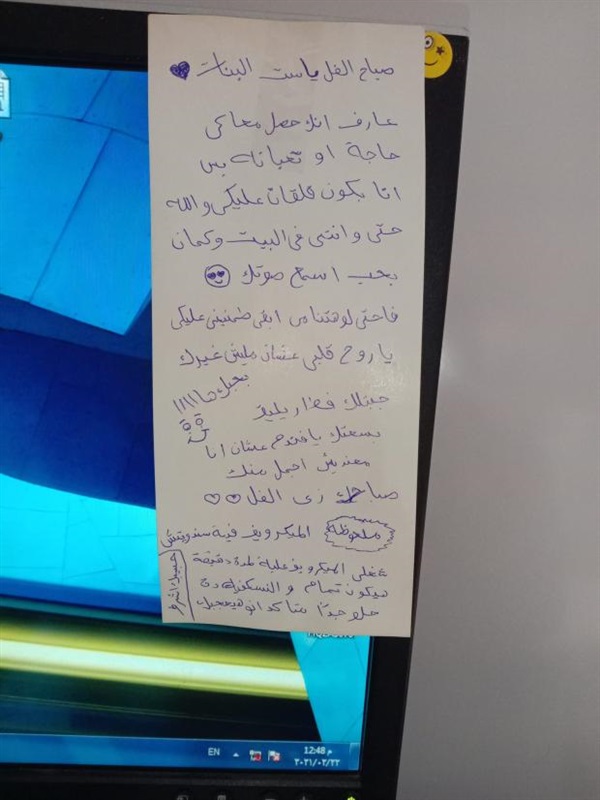 صباح الفل ياست البنات
عارف انك حصل معاكى
حاجة او تعبانه بس
انا بكون قلقان عليكى والله
حتى وانتى فى البيت وكمان
بحب اسمع صوتك
فاحتى لو هتنامى ابقى طمنينى عليكى
ياروح قلبى عشان مليش غيرك
بحبك
جبتلك فطار يليق
بسعتك يافندم عشان انا
معنديش اجمل منك
صباحك زى الفل
ملحوظة الميكرويف فية سندوتش
شغلى الميكرويف علية لمدة دقيقة
هيكون تمام و النسكافية دة
حلو جدًا متأكد انو هيعجبك
حبيبك
EN
12:48 م
٢٠٢١/٠٢/٢٢